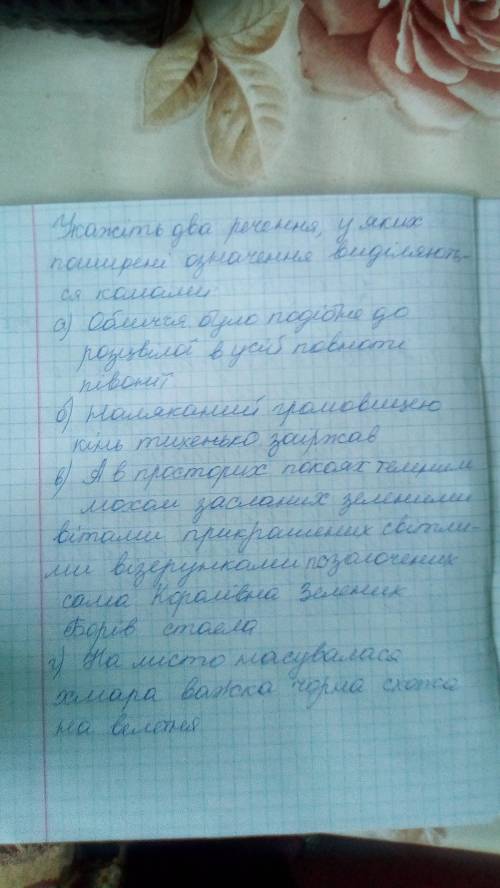 Укажіть два речення, у яких
поширені означення виділяють-
ся комами
а) Обличчя було подібне до
розцвілої в усій повноті
півонії
б) Наляканий громовицею
кінь тихенько заіржав
в) А в просторих покоях темним
мохом засланих зеленими
вітами прикрашених світли-
ми візерунками позолочених
сама Королівна Зелених
Борів стояла
г) На місто насувалася
хмара важка чорна схожа
на велетня